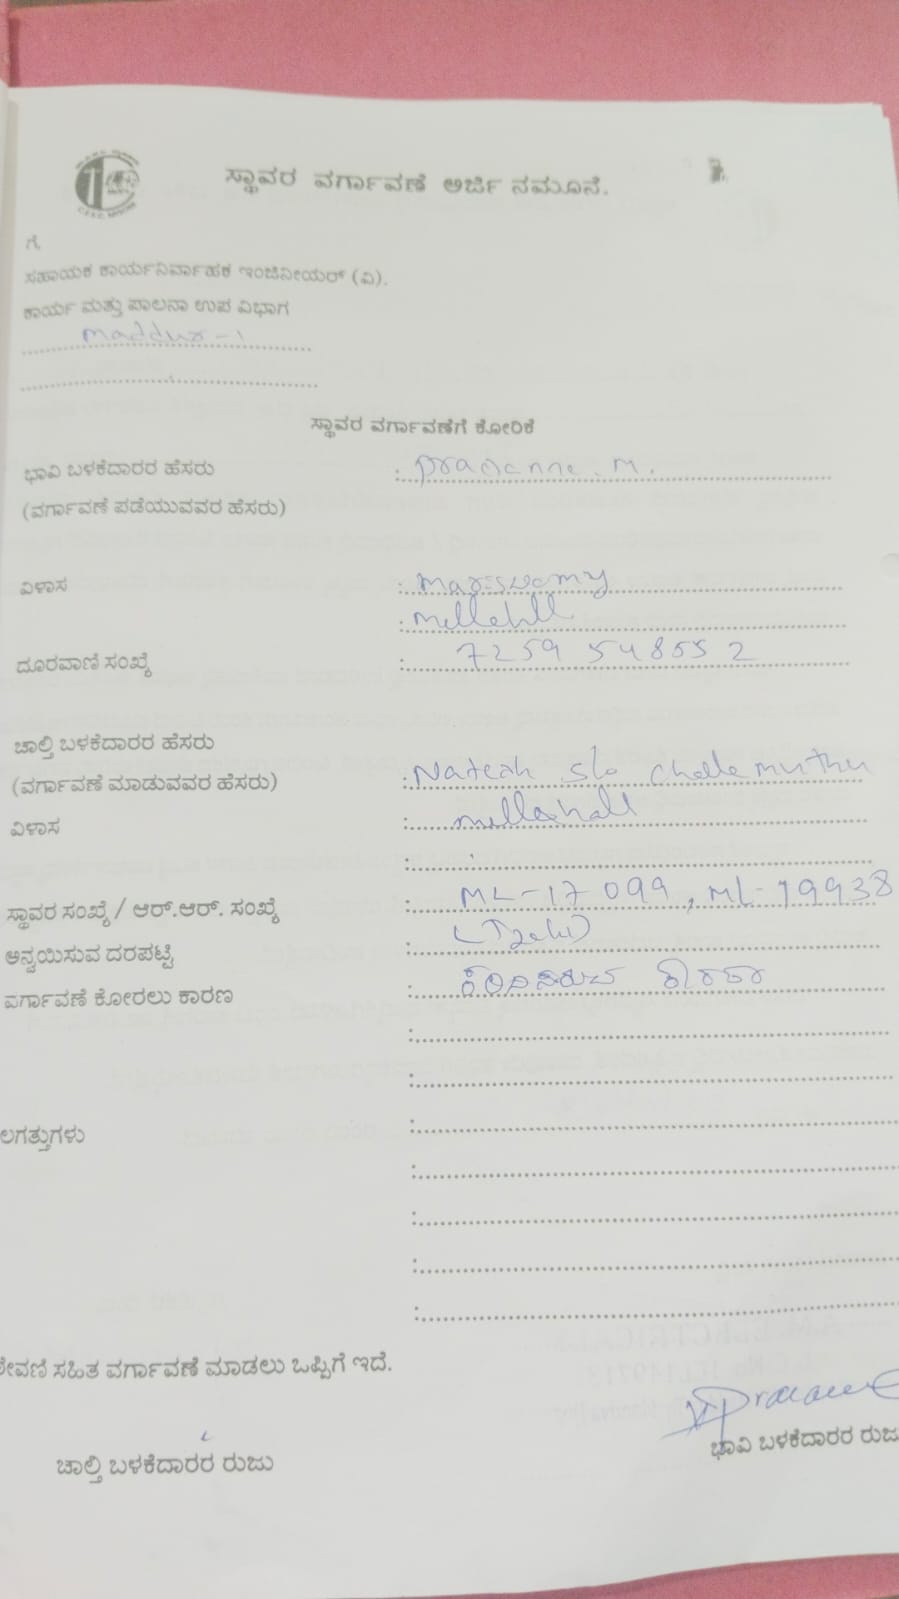 ಸ್ಥಾವರ ವರ್ಗಾವಣೆ ಅರ್ಜಿ ನಮೂನೆ.
ಗೆ,
ಸಹಾಯಕ ಕಾರ್ಯನಿರ್ವಾಹಕ ಇಂಜಿನೀಯರ್ (ವಿ).
ಕಾರ್ಯ ಮತ್ತು ಪಾಲನಾ ಉಪ ವಿಭಾಗ
Maddur-1
ಸ್ಥಾವರ ವರ್ಗಾವಣೆಗೆ ಕೋರಿಕೆ
ಭಾವಿ ಬಳಕೆದಾರರ ಹೆಸರು : M.
(ವರ್ಗಾವಣೆ ಪಡೆಯುವವರ ಹೆಸರು)
ವಿಳಾಸ :
ದೂರವಾಣಿ ಸಂಖ್ಯೆ : 7259 548552
ಚಾಲ್ತಿ ಬಳಕೆದಾರರ ಹೆಸರು
(ವರ್ಗಾವಣೆ ಮಾಡುವವರ ಹೆಸರು) : Natesh S/o
ವಿಳಾಸ :
ಸ್ಥಾವರ ಸಂಖ್ಯೆ / ಆರ್.ಆರ್. ಸಂಖ್ಯೆ : ML-17099, ML-19938
ಅನ್ವಯಿಸುವ ದರಪಟ್ಟಿ :
ವರ್ಗಾವಣೆ ಕೋರಲು ಕಾರಣ :
ಲಗತ್ತುಗಳು :
ಠೇವಣಿ ಸಹಿತ ವರ್ಗಾವಣೆ ಮಾಡಲು ಒಪ್ಪಿಗೆ ಇದೆ.
ಚಾಲ್ತಿ ಬಳಕೆದಾರರ ರುಜು
ಭಾವಿ ಬಳಕೆದಾರರ ರುಜು